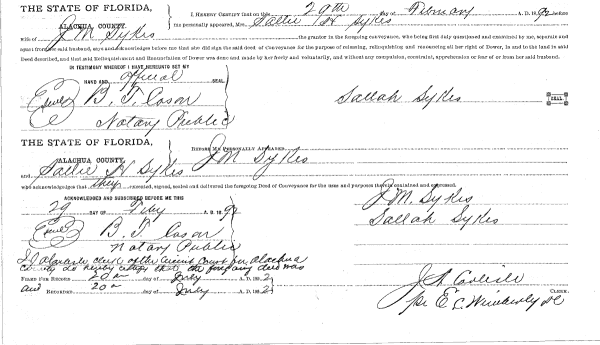 THE STATE OF FLORIDA,
ALACHUA COUNTY.
I HEREBY CERTIFY that on this 29th day of February A. D. 1892 before
me personally appeared, Mrs. Sallie H Sykes
wife of J M Sykes the grantor in the foregoing conveyance, who being first duly questioned and examined by me, separate and
apart from her said husband, says and acknowledges before me that she did sign the said deed of Conveyance for the purpose of releasing, relinquishing and renouncing all her right of Dower, in and to the land in said
Deed described, and that said Relinquishment and Renunciation of Dower was done and made by her freely and voluntarily, and without any compulsion, constraint, apprehension or fear of or from her said husband.
IN TESTIMONY WHEREOF I HAVE HEREUNTO SET MY
HAND AND official SEAL.
B. F. Cason
Notary Public
Sallah Sykes SEAL
THE STATE OF FLORIDA,
ALACHUA COUNTY,
BEFORE ME PERSONALLY APPEARED J M Sykes
and Sallie H Sykes
who acknowledges that they executed, signed, sealed and delivered the foregoing Deed of Conveyance for the uses and purposes therein contained and expressed.
ACKNOWLEDGED AND SUBSCRIBED BEFORE ME THIS
29 DAY OF Feby A. D. 1892
B. F. Cason
Notary Public
J. M. Sykes
Sallah Sykes
clerk of the Circuit Court for Alachua
County do hereby certify that the foregoing deed was
FILED FOR RECORD 20 day of July A.D. 1892
and RECORDED 20 day of July A.D. 1892
J A Carlisle CLERK.
per E C Wimberly DC